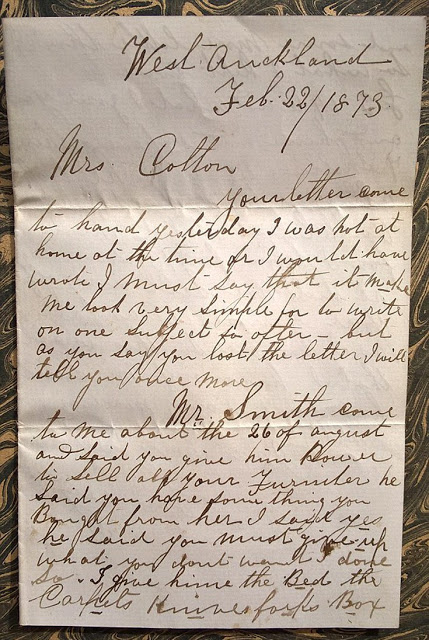 West Auckland
Feb. 22/1873.
Mrs. Cotton
your letter come
to hand yesterday I was not at
home at the time or I would have
wrote I must say that it make
me look very simple for to write
on one subject so often - but
as you say you lost the letter I will
tell you once more
Mr. Smith come
to me about the 26 of august
and said you give him Power
to sell all your Furniter he
said you have som thing you
Bought from her I said yes
he said you must give up
what you dont want I done
so. I give hime the Bed the
Carpets Knivesforks Box